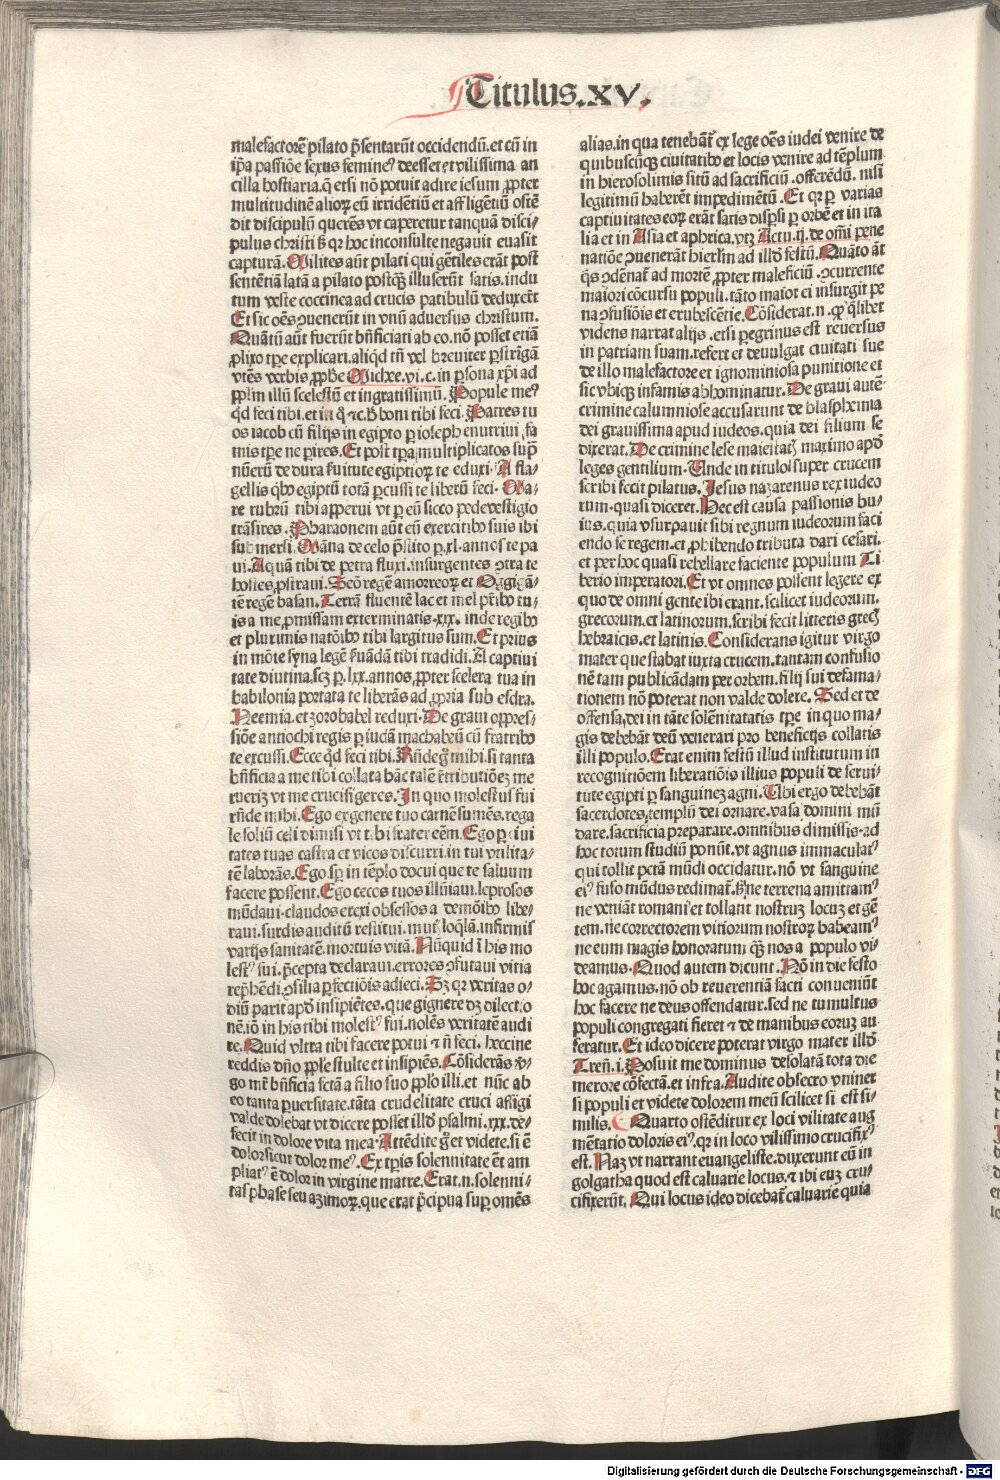 Titulus.XV.
malefactorē pilato p̄sentarūt occidendū.et cū in
ip̄a passiōe sexus femineꝰ deesset ⁊ vilissima an
cilla hostiaria.q̄ etsi nō potuit adire iesum ꝓpter
multitudinē alioꝝ eū irridentiū et affligentiū ostē
dit discipulū querēs vt caperetur tanquā disci⸗
pulus christi sꝫ qꝛ hoc inconsulte negauit euasit
capturā. Milites aūt pilati qui gētiles erāt post
sententiā latā a pilato postqꝫ illuserūt satis.indu
tum veste coccinea ad crucis patibulū deduxerūt
Et sic oēs ꝯuenerūt in vnū aduersus christum.
Quātū aūt fuerūt bn̄ficiati ab eo.nō posset etiā
ꝓlixo tꝑe explicari.aliqd tn̄ vel breuiter ꝑstrīgā
vtēs verbis ꝓph̄e Michee.vi.c.in ꝑsona xp̄i ad
ppl̄m illū scelestū et ingratissimū. Popule meꝰ
qd feci tibi.et in q̄ ⁊c. boni tibi feci. Patres tu
os iacob cū filijs in egipto ꝑ ioseph enutriui fa
mis tꝑe ne ꝑires. Et post tꝑa multiplicatos suꝑ
nūerū de dura ſuitute egiptioꝝ te eduxi. A fla⸗
gellis qbꝰ egiptū totā ꝑcussi te liberū feci. Ma⸗
re rubrū tibi apperui vt ꝑ eū sicco pede vestigio
trāsires. Pharaonem aūt cū exercitibꝰ suis ibi
submersi. Māna de celo p̄stito ꝑ.xl.annos te pa
ui. Aquā tibi de petra fluxi.insurgentes ꝯtra te
hostes ꝓstraui. Seō regē amorreoꝝ et Og gigā⸗
tē regē basan. Terrā fluentē lac et mel pr̄ibꝰ tu⸗
is a me ꝓmissam exterminatis.xxx. inde regibꝰ
et plurimis natōibꝰ tibi largitus sum. Et prius
in mōte syna legē ſuādā tibi tradidi. A captiui
tate diutina.scꝫ ꝑ.lxx.annos ꝓpter scelera tua in
babilonia portata te liberās ad ꝓpria sub esdra.
Neemia.et zorobabel reduxi. De graui oppres⸗
siōe antiochi regis ꝑ iudā machabeū cū fratribꝰ
te excussi. Ecce qd feci tibi. Rn̄de gͦ mihi.si tanta
bn̄ficia a me tibi collata hāc talē ⁊tributiōeꝫ me
rueriꝫ vt me crucifigeres. In quo molestus fui
rn̄de mihi. Ego ex genere tuo carnē sumēs.rega
le soliū celi dimisi vt tibi frater eēm. Ego ꝑ ciui
tates tuas castra et vicos discurri.in tui vtilita⸗
tē laborās. Ego sꝑ in tēplo docui que te saluum
facere possent. Ego cecos tuos illūiaui.leprosos
mūdaui.claudos erexi obsessos a demōibꝰ libe⸗
raui.surdis auditū restitui.mutꝭ loq̄lā.infirmis
varijs sanitatē.mortuis vitā. Nūquid ī his mo
lestꝰ fui.p̄cepta declaraui.errores ꝯfutaui vitia
rep̄hēdi.ꝯsilia ꝑfectiōis adieci. Sꝫ qꝛ veritas o⸗
diū parit apd insipiētes.que gignere dꝫ dilectio
nē.iō in his tibi molestꝰ fui.nolēs veritatē audi
re. Quid vltra tibi facere potui ⁊ nō feci. heccine
reddis dn̄o ppl̄e stulte et insipiēs. Cōsiderās v̄⸗
go mr̄ bn̄ficia fctā a filio suo ppl̄o illi.et nūc ab
eo tanta ꝑuersitate.tāta crudelitate cruci affigi
valde dolebat vt dicere posset illd psalmi.xxx.de⸗
fecit in dolore vita mea. Attēdite gͦ et videte.si ē
dolor sicut dolor meꝰ. Ex tꝑis solennitate ēt am
pliatꝰ ē dolor in virgine matre. Erat.n.solenni⸗
tas phase seu azimoꝝ.que erat p̄cipua suꝑ omēs
alias.in qua tenebāt̄ ex lege oēs iudei venire de
quibuscūqꝫ ciuitatibꝰ et locis venire ad tēplum
in hierosolimis sitū ad sacrificiū.offerēdū. nisi
legitimū haberēt impedimētū. Et qꝛ ꝑ varias
captiuitates eoꝝ erāt satis disꝑsi ꝑ orbē et in ita
lia et in Asia et aphrica.vtꝫ Actu.ij.de om̄i pene
natiōe ꝯuenerāt hierlm̄ ad illd festū. Quāto aūt
q̄s ꝯdēnat̄ ad mortē ꝓpter maleficiū .ꝯcurrente
maiori cōcursu populi.tāto maior ei insurgit pe
na ꝯfusiōis et erubescētie. Cōsiderat.n. ꝙ q̄libet
videns narrat alijs.etsi pegrinus est reuersus
in patriam suam.refert et deuulgat ciuitati sue
de illo malefactore et ignominiosa punitione et
sic vbiqꝫ infamis abhominatur. De graui autē
crimine calumniose accusarunt de blasphemia
dei grauissima apud iudeos.quia dei filium se
dixerat. De crimine lese maiestatꝭ maximo apd
leges gentilium. Unde in titulo super crucem
scribi fecit pilatus. Jesus nazarenus rex iudeo
rum.quasi diceret. Hec est causa passionis hu⸗
ius.quia vsurpauit sibi regnum iudeorum faci
endo se regem.et ꝓhibendo tributa dari cesari.
et per hoc quasi rebellare faciente populum Ti
berio imperatori. Et vt omnes possent legere ex
quo de omni gente ibi erant.scilicet iudeorum.
grecorum.et latinorum.scribi fecit litteris grecꝭ
hebraicis.et latinis. Considerans igitur virgo
mater que stabat iuxta crucem.tantam confusio
nē tam publicādam per orbem.filij sui defama⸗
tionem nō poterat non valde dolere. Sed et de
offensa.dei in tāte solēnitatatis tꝑe in quo ma⸗
gis debebāt deū venerari pro beneficijs collatis
illi populo. Erat enim festū illud institutum in
recognitiōem liberatiōis illius populi de serui⸗
tute egipti ꝑ sanguineꝫ agni. Ubi ergo debebāt
sacerdotes templū dei ornare.vasa domini mū
dare.sacrificia preparare.omnibus dimissis.ad
hoc totum studiū ponūt.vt agnus immaculatꝰ
qui tollit pctā mūdi occidatur.nō vt sanguine
eiꝰ fuso mūdus redimat̄. Sꝫ ne terrena amittamꝰ
ne veniāt romani et tollant nostruꝫ locuꝫ et gē
tem.ne correctorem vitiorum nostroꝝ habeamꝰ
ne eum magis honoratum qꝫ nos a populo vi⸗
deamus. Quod autem dicunt. Nō in die festo
hoc agamus.nō ob reuerentiā facti conueniūt
hoc facere ne deus offendatur.sed ne tumultus
populi congregati fieret ⁊ de manibus eoruꝫ au
feratur. Et ideo dicere poterat virgo mater illd
Tren̄.i. Posuit me dominus desolatā tota die
merore cōfectā.et infra. Audite obsecro vniuer
si populi et videte dolorem meū scilicet si est si⸗
milis. Quarto ostēditur ex loci vilitate aug
mētatio doloris eiꝰ.qꝛ in loco vilissimo crucifixꝰ
est. Naꝫ vt narrant euangeliste.duxerunt eū in
golgatha quod est caluarie locus.⁊ ibi euꝫ cru⸗
cifixerūt. Qui locus ideo dicebat̄ caluarie quia
Digitalisierung gefördert durch die Deutsche Forschungsgemeinschaft - DFG